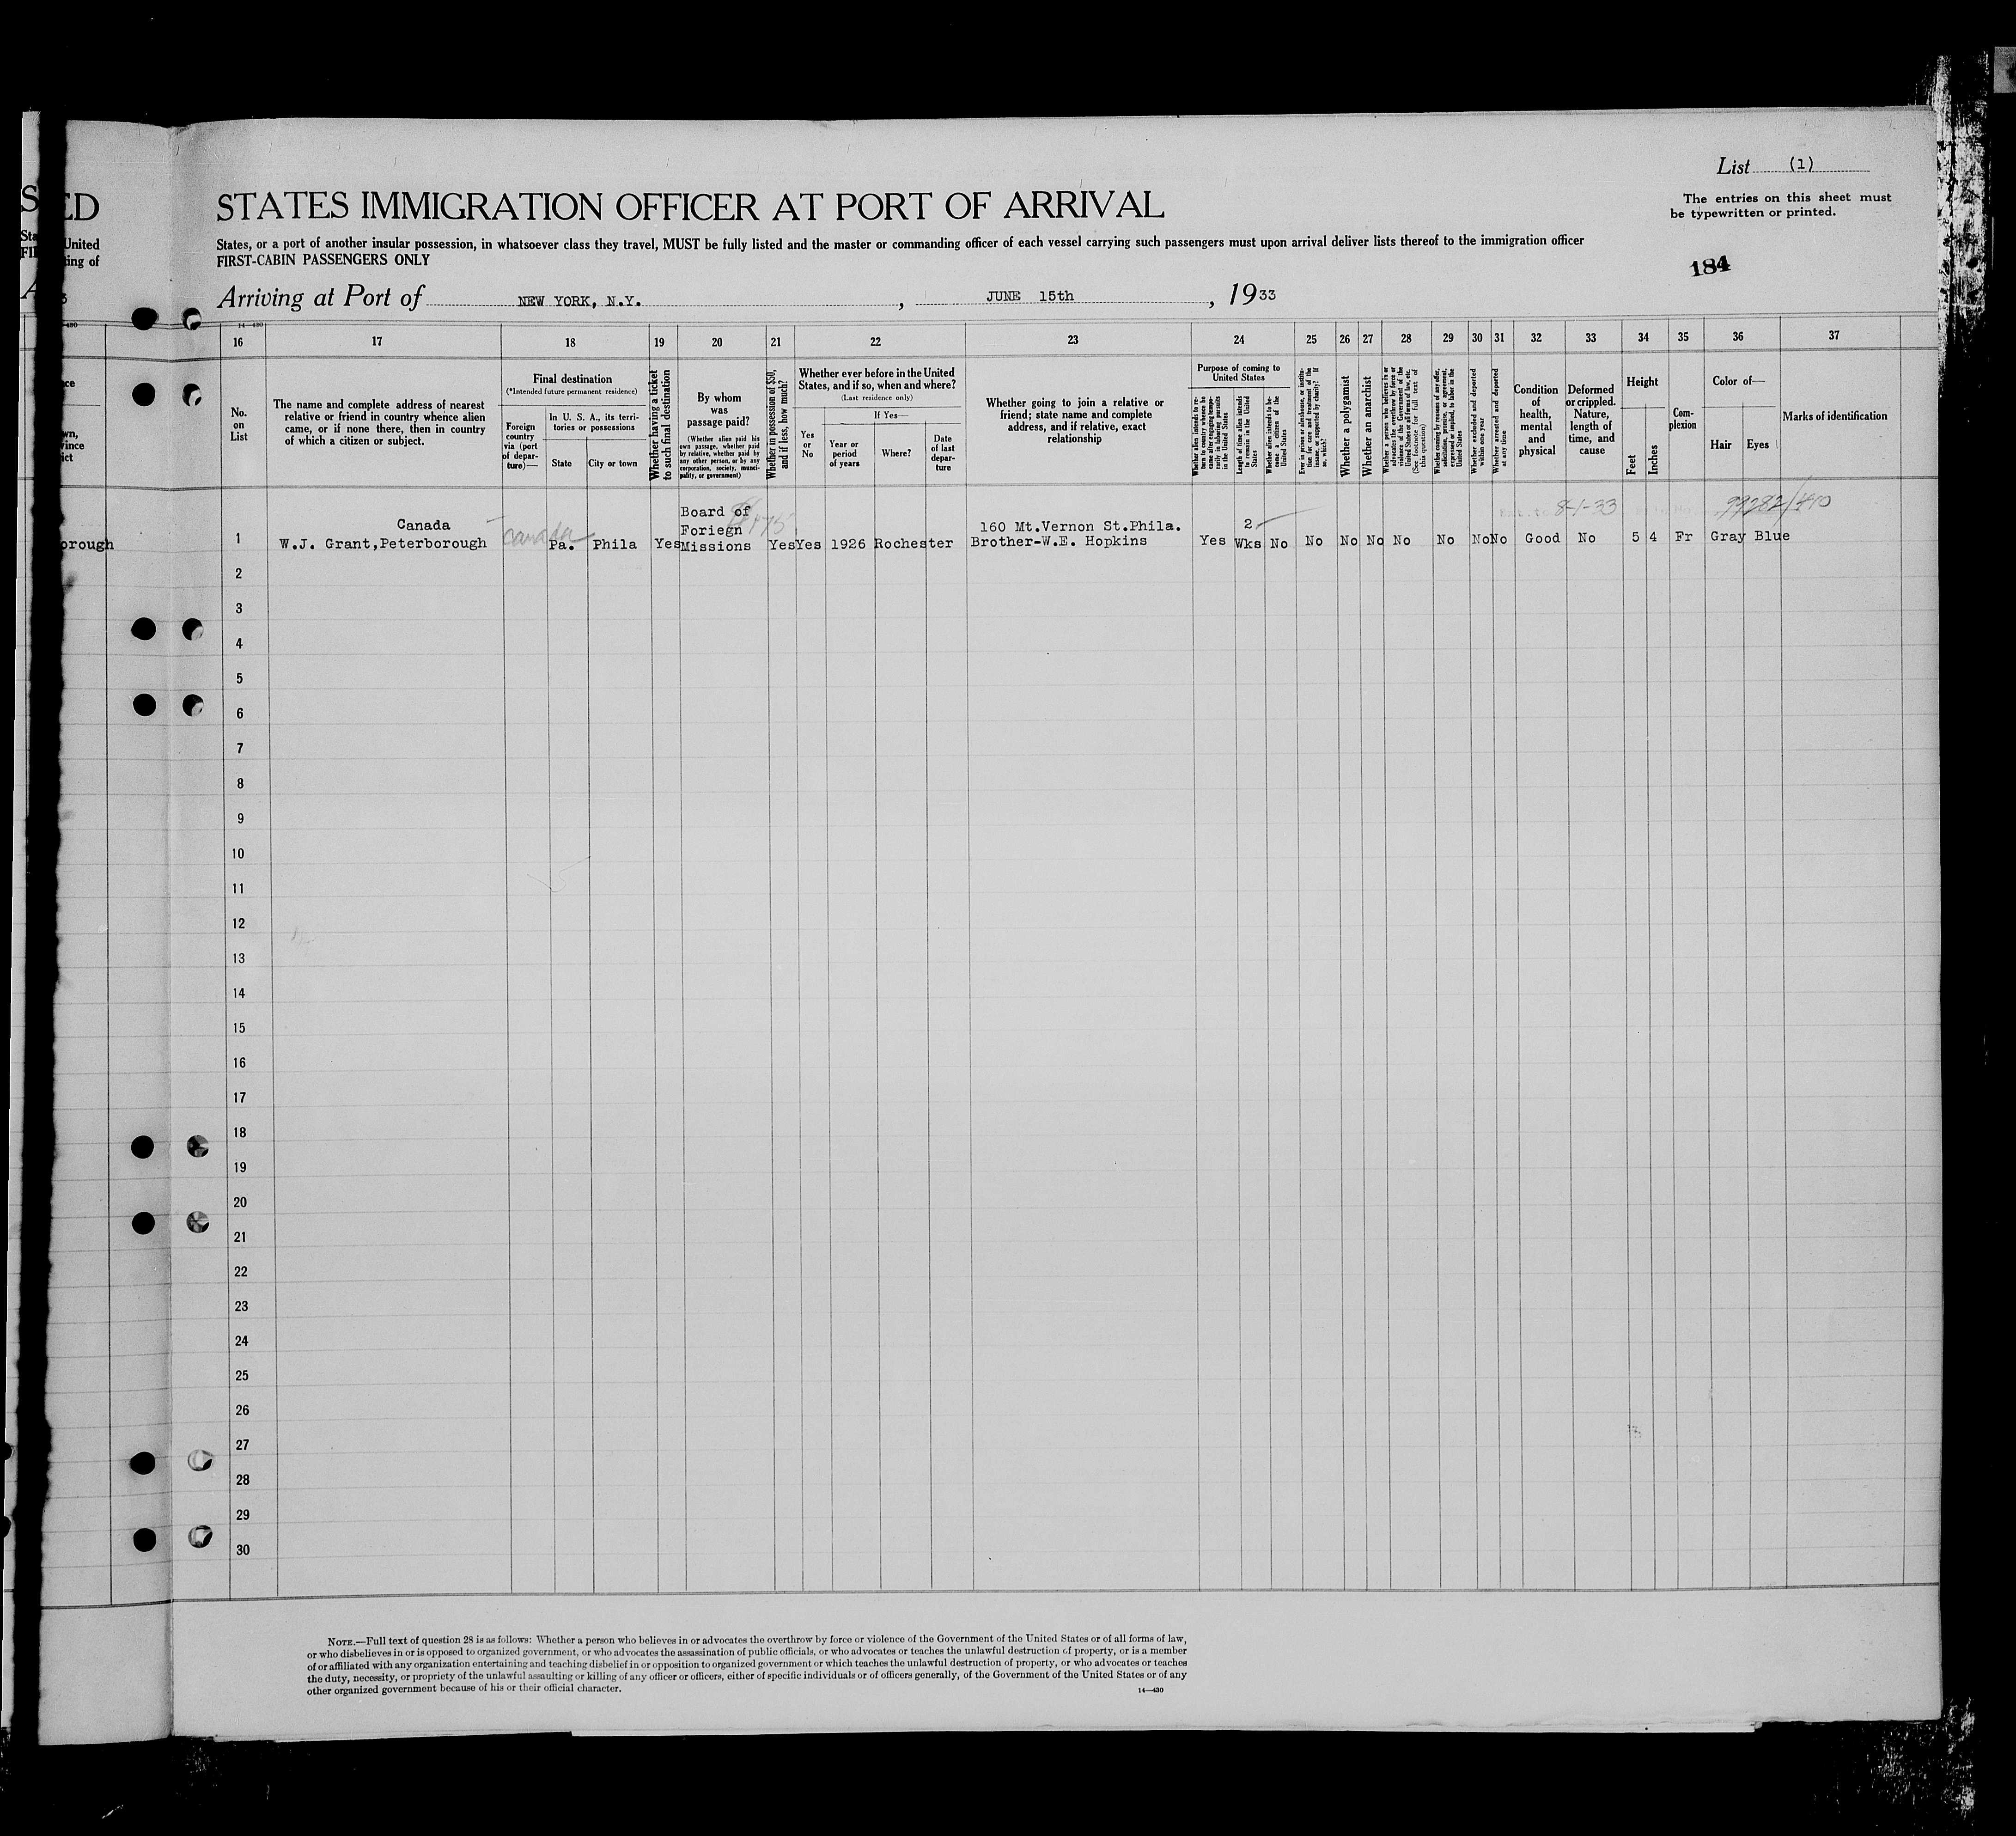 List (1)
The entries on this sheet must
be typewritten or printed.
184
STATES IMMIGRATION OFFICER AT PORT OF ARRIVAL
States, or a port of another insular possession, in whatsoever class they travel, MUST be fully listed and the master or commanding officer of each vessel carrying such passengers must upon arrival deliver lists thereof to the immigration officer
FIRST-CABIN PASSENGERS ONLY
Arriving at Port of NEW YORK, N.Y. , JUNE 15th , 1933
14—430
16 17 18 19 20 21 22 23 24 25 26 27 28 29 30 31 32 33 34 35 36 37
No.
on
List
The name and complete address of nearest
relative or friend in country whence alien
came, or if none there, then in country
of which a citizen or subject.
Final destination
(*Intended future permanent residence)
Foreign
country
via (port
of depar-
ture)—
In U. S. A., its terri-
tories or possessions
State
City or town
Whether having a ticket
to such final destination
By whom
was
passage paid?
(Whether alien paid his
own passage, whether paid
by relative, whether paid by
any other person, or by any
corporation, society, munici-
pality, or government)
Whether in possession of $50,
and if less, how much?
Whether ever before in the United
States, and if so, when and where?
(Last residence only)
Yes
or
No
If Yes—
Year or
period
of years
Where?
Date
of last
depar-
ture
Whether going to join a relative or
friend; state name and complete
address, and if relative, exact
relationship
Purpose of coming to
United States
Whether alien intends to re-
turn to country whence he
came after engaging tempo-
rarily in laboring pursuits
in the United States
Length of time alien intends
to remain in the United
States
Whether alien intends to be-
come a citizen of the
United States
Ever in prison or almshouse, or institu-
tion for care and treatment of the
insane, or supported by charity? If
so, which?
Whether a polygamist
Whether an anarchist
Whether a person who believes in or
advocates the overthrow by force or
violence of the Government of the
United States or all forms of law, etc.
(See footnote for full text of
this question)
Whether coming by reasons of any offer,
solicitation, promise, or agreement,
expressed or implied, to labor in the
United States
Whether excluded and deported
within one year
Whether arrested and deported
at any time
Condition
of
health,
mental
and
physical
Deformed
or crippled.
Nature,
length of
time, and
cause
Height
Feet
Inches
Com-
plexion
Color of—
Hair
Eyes
Marks of identification
8-1-33
99282/410
Canada
1 W.J. Grant,Peterborough
Canada
Pa. Phila Yes
Board of
Foriegn
Missions
Yes Yes 1926 Rochester
160 Mt.Vernon St.Phila.
Brother-W.E. Hopkins
Yes
2
Wks
No No No No No No No No Good No 5 4 Fr Gray Blue
2
3
4
5
6
7
8
9
10
11
12
13
14
15
16
17
18
19
20
21
22
23
24
25
26
27
28
29
30
NOTE.—Full text of question 28 is as follows: Whether a person who believes in or advocates the overthrow by force or violence of the Government of the United States or of all forms of law,
or who disbelieves in or is opposed to organized government, or who advocates the assassination of public officials, or who advocates or teaches the unlawful destruction of property, or is a member
of or affiliated with any organization entertaining and teaching disbelief in or opposition to organized government or which teaches the unlawful destruction of property, or who advocates or teaches
the duty, necessity, or propriety of the unlawful assaulting or killing of any officer or officers, either of specific individuals or of officers generally, of the Government of the United States or of any
other organized government because of his or their official character.
14—430